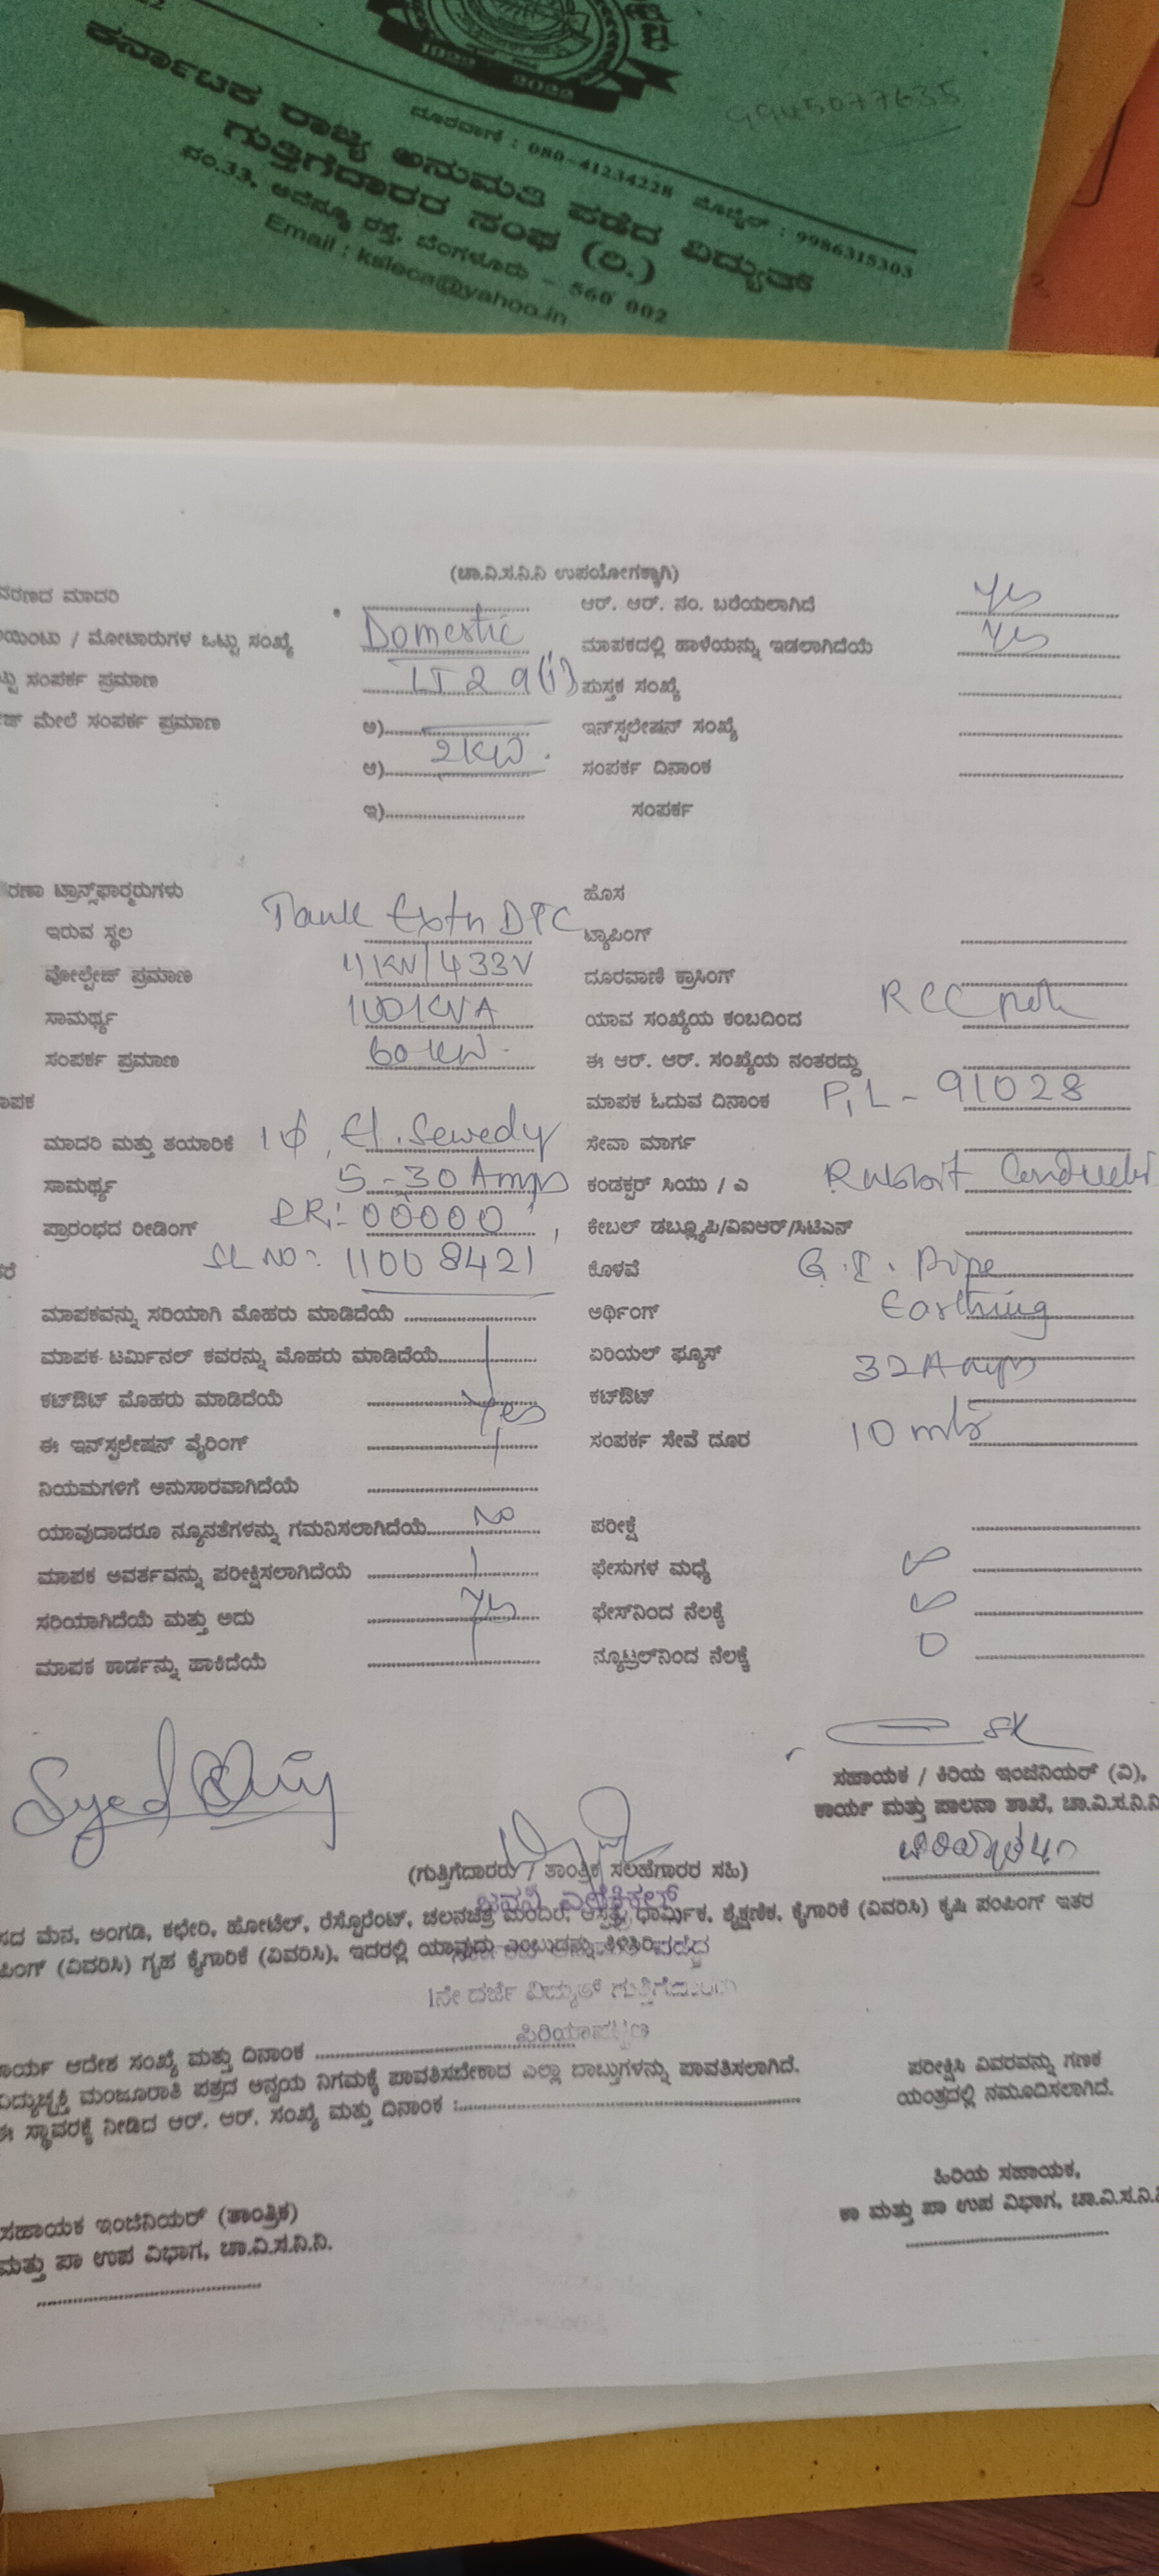 1922 - 2022
9945077635
ದೂರವಾಣಿ : 080-41234228 ಮೊಬೈಲ್ : 9986315303
ಕರ್ನಾಟಕ ರಾಜ್ಯ ಅನುಮತಿ ಪಡೆದ ವಿದ್ಯುತ್
ಗುತ್ತಿಗೆದಾರರ ಸಂಘ (ರಿ.)
ನಂ.33, ಅವೆನ್ಯೂ ರಸ್ತೆ, ಬೆಂಗಳೂರು - 560 002
Email : ksleca@yahoo.in
(ಚಾ.ವಿ.ಸ.ನಿ.ನಿ ಉಪಯೋಗಕ್ಕಾಗಿ)
ಮಾದರಿ ಆರ್. ಆರ್. ನಂ. ಬರೆಯಲಾಗಿದೆ Yes
/ ಮೋಟಾರುಗಳ ಒಟ್ಟು ಸಂಖ್ಯೆ Domestic ಮಾಪಕದಲ್ಲಿ ಹಾಳೆಯನ್ನು ಇಡಲಾಗಿದೆಯೆ Yes
ಸಂಪರ್ಕ ಪ್ರಮಾಣ LT 2 a(i) ಪುಸ್ತಕ ಸಂಖ್ಯೆ
ಮೇಲೆ ಸಂಪರ್ಕ ಪ್ರಮಾಣ ಅ) ಇನ್‌ಸ್ಟಲೇಷನ್ ಸಂಖ್ಯೆ
ಆ) 2KW. ಸಂಪರ್ಕ ದಿನಾಂಕ
ಇ) ಸಂಪರ್ಕ
ಟ್ರಾನ್ಸ್‌ಫಾರ್ಮರುಗಳು ಹೊಸ
ಇರುವ ಸ್ಥಳ Tank Extn DTC ಟ್ಯಾಪಿಂಗ್
ವೋಲ್ಟೇಜ್ ಪ್ರಮಾಣ 11KV/433V ದೂರವಾಣಿ ಕ್ರಾಸಿಂಗ್
ಸಾಮರ್ಥ್ಯ 100KVA ಯಾವ ಸಂಖ್ಯೆಯ ಕಂಬದಿಂದ RCC
ಸಂಪರ್ಕ ಪ್ರಮಾಣ 60 KW. ಈ ಆರ್. ಆರ್. ಸಂಖ್ಯೆಯ ನಂತರದ್ದು
ಮಾಪಕ ಓದುವ ದಿನಾಂಕ P,L - 91028
ಮಾದರಿ ಮತ್ತು ತಯಾರಿಕೆ 1φ, El.Sewedy ಸೇವಾ ಮಾರ್ಗ
ಸಾಮರ್ಥ್ಯ 5-30 Amps ಕಂಡಕ್ಟರ್ ಸಿಯು / ಎ Rabbit Conductor
ಪ್ರಾರಂಭದ ರೀಡಿಂಗ್ 00000, ಕೇಬಲ್ ಡಬ್ಲ್ಯೂಪಿ/ವಿಐಆರ್/ಸಿಟಿಎಸ್
SL NO: 11008421 ಕೊಳವೆ G.I. Pipe
ಮಾಪಕವನ್ನು ಸರಿಯಾಗಿ ಮೊಹರು ಮಾಡಿದೆಯೆ ಅರ್ಥಿಂಗ್ Earthing
ಮಾಪಕ ಟರ್ಮಿನಲ್ ಕವರನ್ನು ಮೊಹರು ಮಾಡಿದೆಯೆ ಏರಿಯಲ್ ಫ್ಯೂಸ್ 32 Amps
ಕಟ್‌ಔಟ್ ಮೊಹರು ಮಾಡಿದೆಯೆ Yes ಕಟ್‌ಔಟ್
ಈ ಇನ್‌ಸ್ಟಲೇಷನ್ ವೈರಿಂಗ್ ಸಂಪರ್ಕ ಸೇವೆ ದೂರ 10 mts
ನಿಯಮಗಳಿಗೆ ಅನುಸಾರವಾಗಿದೆಯೆ
ಯಾವುದಾದರೂ ನ್ಯೂನತೆಗಳನ್ನು ಗಮನಿಸಲಾಗಿದೆಯೆ No ಪರೀಕ್ಷೆ
ಮಾಪಕ ಅವರ್ತವನ್ನು ಪರೀಕ್ಷಿಸಲಾಗಿದೆಯೆ ಫೇಸುಗಳ ಮಧ್ಯೆ ∞
ಸರಿಯಾಗಿದೆಯೆ ಮತ್ತು ಅದು Yes ಫೇಸ್‌ನಿಂದ ನೆಲಕ್ಕೆ ∞
ಮಾಪಕ ಕಾರ್ಡನ್ನು ಹಾಕಿದೆಯೆ ನ್ಯೂಟ್ರಲ್‌ನಿಂದ ನೆಲಕ್ಕೆ 0
Syed
ಸಹಾಯಕ / ಕಿರಿಯ ಇಂಜಿನಿಯರ್ (ವಿ),
ಕಾರ್ಯ ಮತ್ತು ಪಾಲನಾ ಶಾಖೆ, ಚಾ.ವಿ.ಸ.ನಿ.ನಿ
(ಗುತ್ತಿಗೆದಾರರು / ತಾಂತ್ರಿಕ ಸಲಹೆಗಾರರ ಸಹಿ)
ಮನೆ, ಅಂಗಡಿ, ಕಛೇರಿ, ಹೋಟೆಲ್, ರೆಸ್ಟೊರೆಂಟ್, ಚಲನಚಿತ್ರ ಮಂದಿರ, ಆಸ್ಪತ್ರೆ, ಧಾರ್ಮಿಕ, ಶೈಕ್ಷಣಿಕ, ಕೈಗಾರಿಕೆ (ವಿವರಿಸಿ) ಕೃಷಿ ಪಂಪಿಂಗ್ ಇತರ
(ವಿವರಿಸಿ) ಗೃಹ ಕೈಗಾರಿಕೆ (ವಿವರಿಸಿ), ಇದರಲ್ಲಿ ಯಾವುದು ಎಂಬುದನ್ನು ತಿಳಿಸಿರಿ
1ನೇ ದರ್ಜೆ ವಿದ್ಯುತ್ ಗುತ್ತಿಗೆದಾರರು
ಪಿರಿಯಾಪಟ್ಟಣ
ಆದೇಶ ಸಂಖ್ಯೆ ಮತ್ತು ದಿನಾಂಕ
ಮಂಜೂರಾತಿ ಪತ್ರದ ಅನ್ವಯ ನಿಗಮಕ್ಕೆ ಪಾವತಿಸಬೇಕಾದ ಎಲ್ಲಾ ಬಾಬ್ತುಗಳನ್ನು ಪಾವತಿಸಲಾಗಿದೆ.
ಈ ಸ್ಥಾವರಕ್ಕೆ ನೀಡಿದ ಆರ್. ಆರ್. ಸಂಖ್ಯೆ ಮತ್ತು ದಿನಾಂಕ :
ಪರೀಕ್ಷಿಸಿ ವಿವರವನ್ನು ಗಣಕ
ಯಂತ್ರದಲ್ಲಿ ನಮೂದಿಸಲಾಗಿದೆ.
ಹಿರಿಯ ಸಹಾಯಕ,
ಕಾ ಮತ್ತು ಪಾ ಉಪ ವಿಭಾಗ, ಚಾ.ವಿ.ಸ.ನಿ.
ಸಹಾಯಕ ಇಂಜಿನಿಯರ್ (ತಾಂತ್ರಿಕ)
ಮತ್ತು ಪಾ ಉಪ ವಿಭಾಗ, ಚಾ.ವಿ.ಸ.ನಿ.ನಿ.